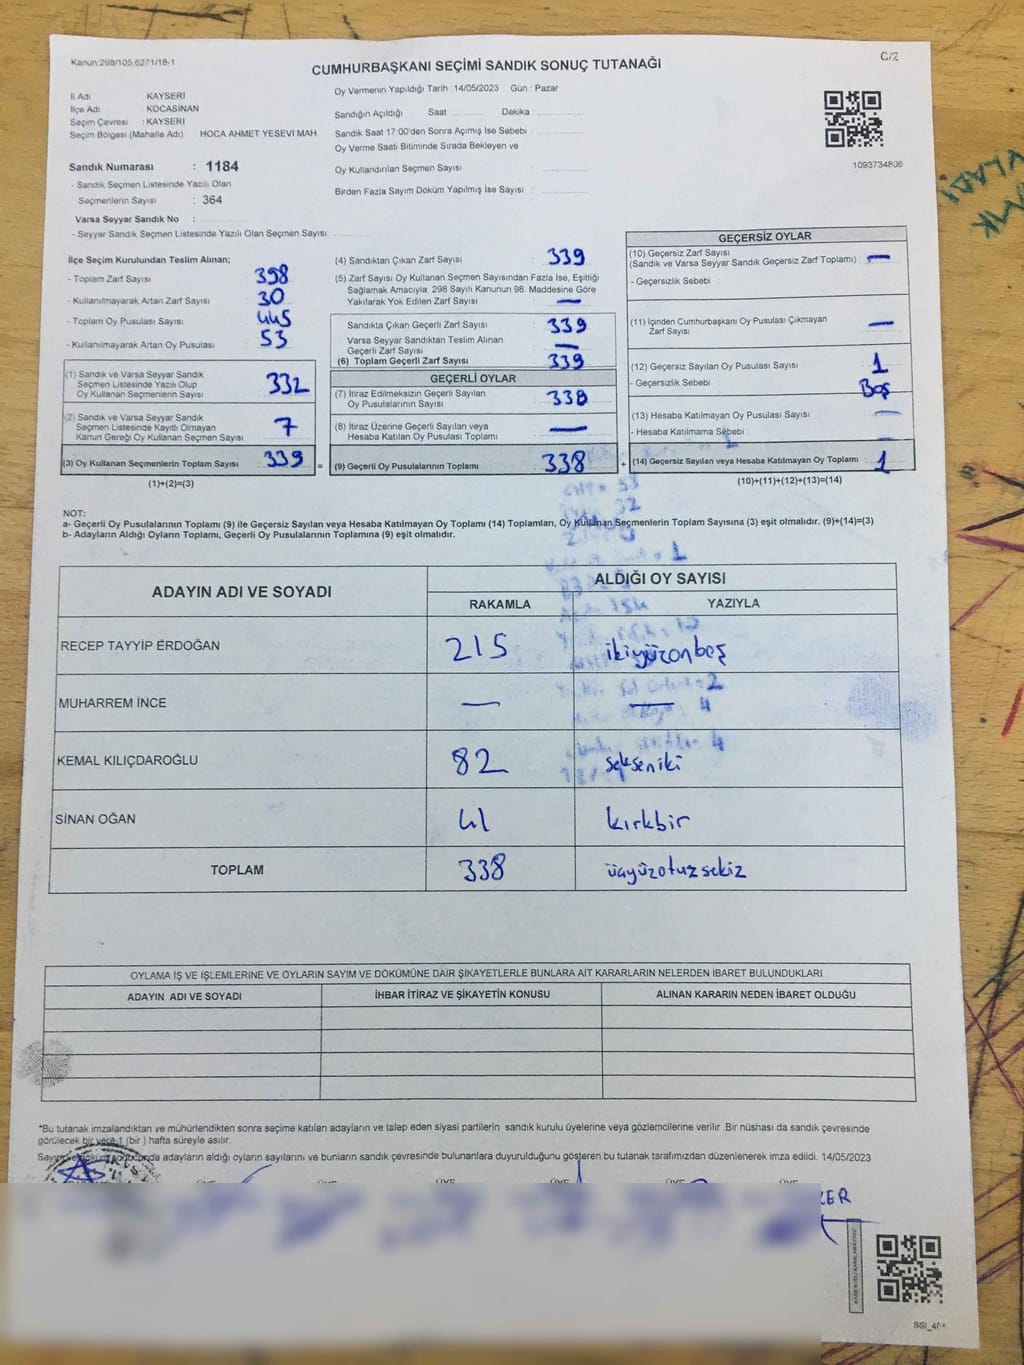 Kanun:298/105,6271/18-1
C/2
CUMHURBAŞKANI SEÇİMİ SANDIK SONUÇ TUTANAĞI
İl Adı KAYSERİ
İlçe Adı KOCASİNAN
Seçim Çevresi : KAYSERİ
Seçim Bölgesi (Mahalle Adı) HOCA AHMET YESEVİ MAH.
Sandık Numarası : 1184
- Sandık Seçmen Listesinde Yazılı Olan
Seçmenlerin Sayısı : 364
Varsa Seyyar Sandık No :
- Seyyar Sandık Seçmen Listesinde Yazılı Olan Seçmen Sayısı:
Oy Vermenin Yapıldığı Tarih 14/05/2023 Gün : Pazar
Sandığın Açıldığı Saat Dakika
Sandık Saat 17:00'den Sonra Açımış İse Sebebi
Oy Verme Saati Bitiminde Sırada Bekleyen ve
Oy Kullandırılan Seçmen Sayısı :
Birden Fazla Sayım Döküm Yapılmış İse Sayısı :
1093734806
İlçe Seçim Kurulundan Teslim Alınan;
- Toplam Zarf Sayısı : 398
- Kullanılmayarak Artan Zarf Sayısı : 30
- Toplam Oy Pusulası Sayısı : 445
- Kullanılmayarak Artan Oy Pusulası : 53
(1) Sandık ve Varsa Seyyar Sandık
Seçmen Listesinde Yazılı Olup
Oy Kullanan Seçmenlerin Sayısı : 332
(2) Sandık ve Varsa Seyyar Sandık
Seçmen Listesinde Kayıtlı Olmayan
Kanun Gereği Oy Kullanan Seçmen Sayısı : 7
(3) Oy Kullanan Seçmenlerin Toplam Sayısı : 339
(1)+(2)=(3)
(4) Sandıktan Çıkan Zarf Sayısı : 339
(5) Zarf Sayısı Oy Kullanan Seçmen Sayısından Fazla İse, Eşitliği
Sağlamak Amacıyla, 298 Sayılı Kanunun 98. Maddesine Göre
Yakılarak Yok Edilen Zarf Sayısı : —
Sandıkta Çıkan Geçerli Zarf Sayısı : 339
Varsa Seyyar Sandıktan Teslim Alınan
Geçerli Zarf Sayısı : —
(6) Toplam Geçerli Zarf Sayısı : 339
GEÇERLİ OYLAR
(7) İtiraz Edilmeksizin Geçerli Sayılan
Oy Pusulalarının Sayısı : 338
(8) İtiraz Üzerine Geçerli Sayılan veya
Hesaba Katılan Oy Pusulası Toplamı : —
= (9) Geçerli Oy Pusulalarının Toplamı : 338
GEÇERSİZ OYLAR
(10) Geçersiz Zarf Sayısı
(Sandık ve Varsa Seyyar Sandık Geçersiz Zarf Toplamı) : —
- Geçersizlik Sebebi :
(11) İçinden Cumhurbaşkanı Oy Pusulası Çıkmayan
Zarf Sayısı : —
(12) Geçersiz Sayılan Oy Pusulası Sayısı : 1
- Geçersizlik Sebebi : Boş
(13) Hesaba Katılmayan Oy Pusulası Sayısı : —
- Hesaba Katılmama Sebebi :
+ (14) Geçersiz Sayılan veya Hesaba Katılmayan Oy Toplamı : 1
(10)+(11)+(12)+(13)=(14)
NOT:
a- Geçerli Oy Pusulalarının Toplamı (9) ile Geçersiz Sayılan veya Hesaba Katılmayan Oy Toplamı (14) Toplamları, Oy Kullanan Seçmenlerin Toplam Sayısına (3) eşit olmalıdır. (9)+(14)=(3)
b- Adayların Aldığı Oyların Toplamı, Geçerli Oy Pusulalarının Toplamına (9) eşit olmalıdır.
ADAYIN ADI VE SOYADI ALDIĞI OY SAYISI
RAKAMLA YAZIYLA
RECEP TAYYİP ERDOĞAN 215 ikiyüzonbeş
MUHARREM İNCE — —
KEMAL KILIÇDAROĞLU 82 sekseniki
SİNAN OĞAN 41 kırkbir
TOPLAM 338 üçyüzotuzsekiz
OYLAMA İŞ VE İŞLEMLERİNE VE OYLARIN SAYIM VE DÖKÜMÜNE DAİR ŞİKAYETLERLE BUNLARA AİT KARARLARIN NELERDEN İBARET BULUNDUKLARI
ADAYIN ADI VE SOYADI İHBAR İTİRAZ VE ŞİKAYETİN KONUSU ALINAN KARARIN NEDEN İBARET OLDUĞU
"Bu tutanak imzalandıktan ve mühürlendikten sonra seçime katılan adayların ve talep eden siyasi partilerin sandık kurulu üyelerine veya gözlemcilerine verilir. Bir nüshası da sandık çevresinde
görülecek bir yere 1 (bir) hafta süreyle asılır.
adayların aldığı oyların sayılarını ve bunların sandık çevresinde bulunanlara duyurulduğunu gösteren bu tutanak tarafımızdan düzenlenerek imza edildi. 14/05/2023
ÜYE ÜYE ÜYE ÜYE ÜYE